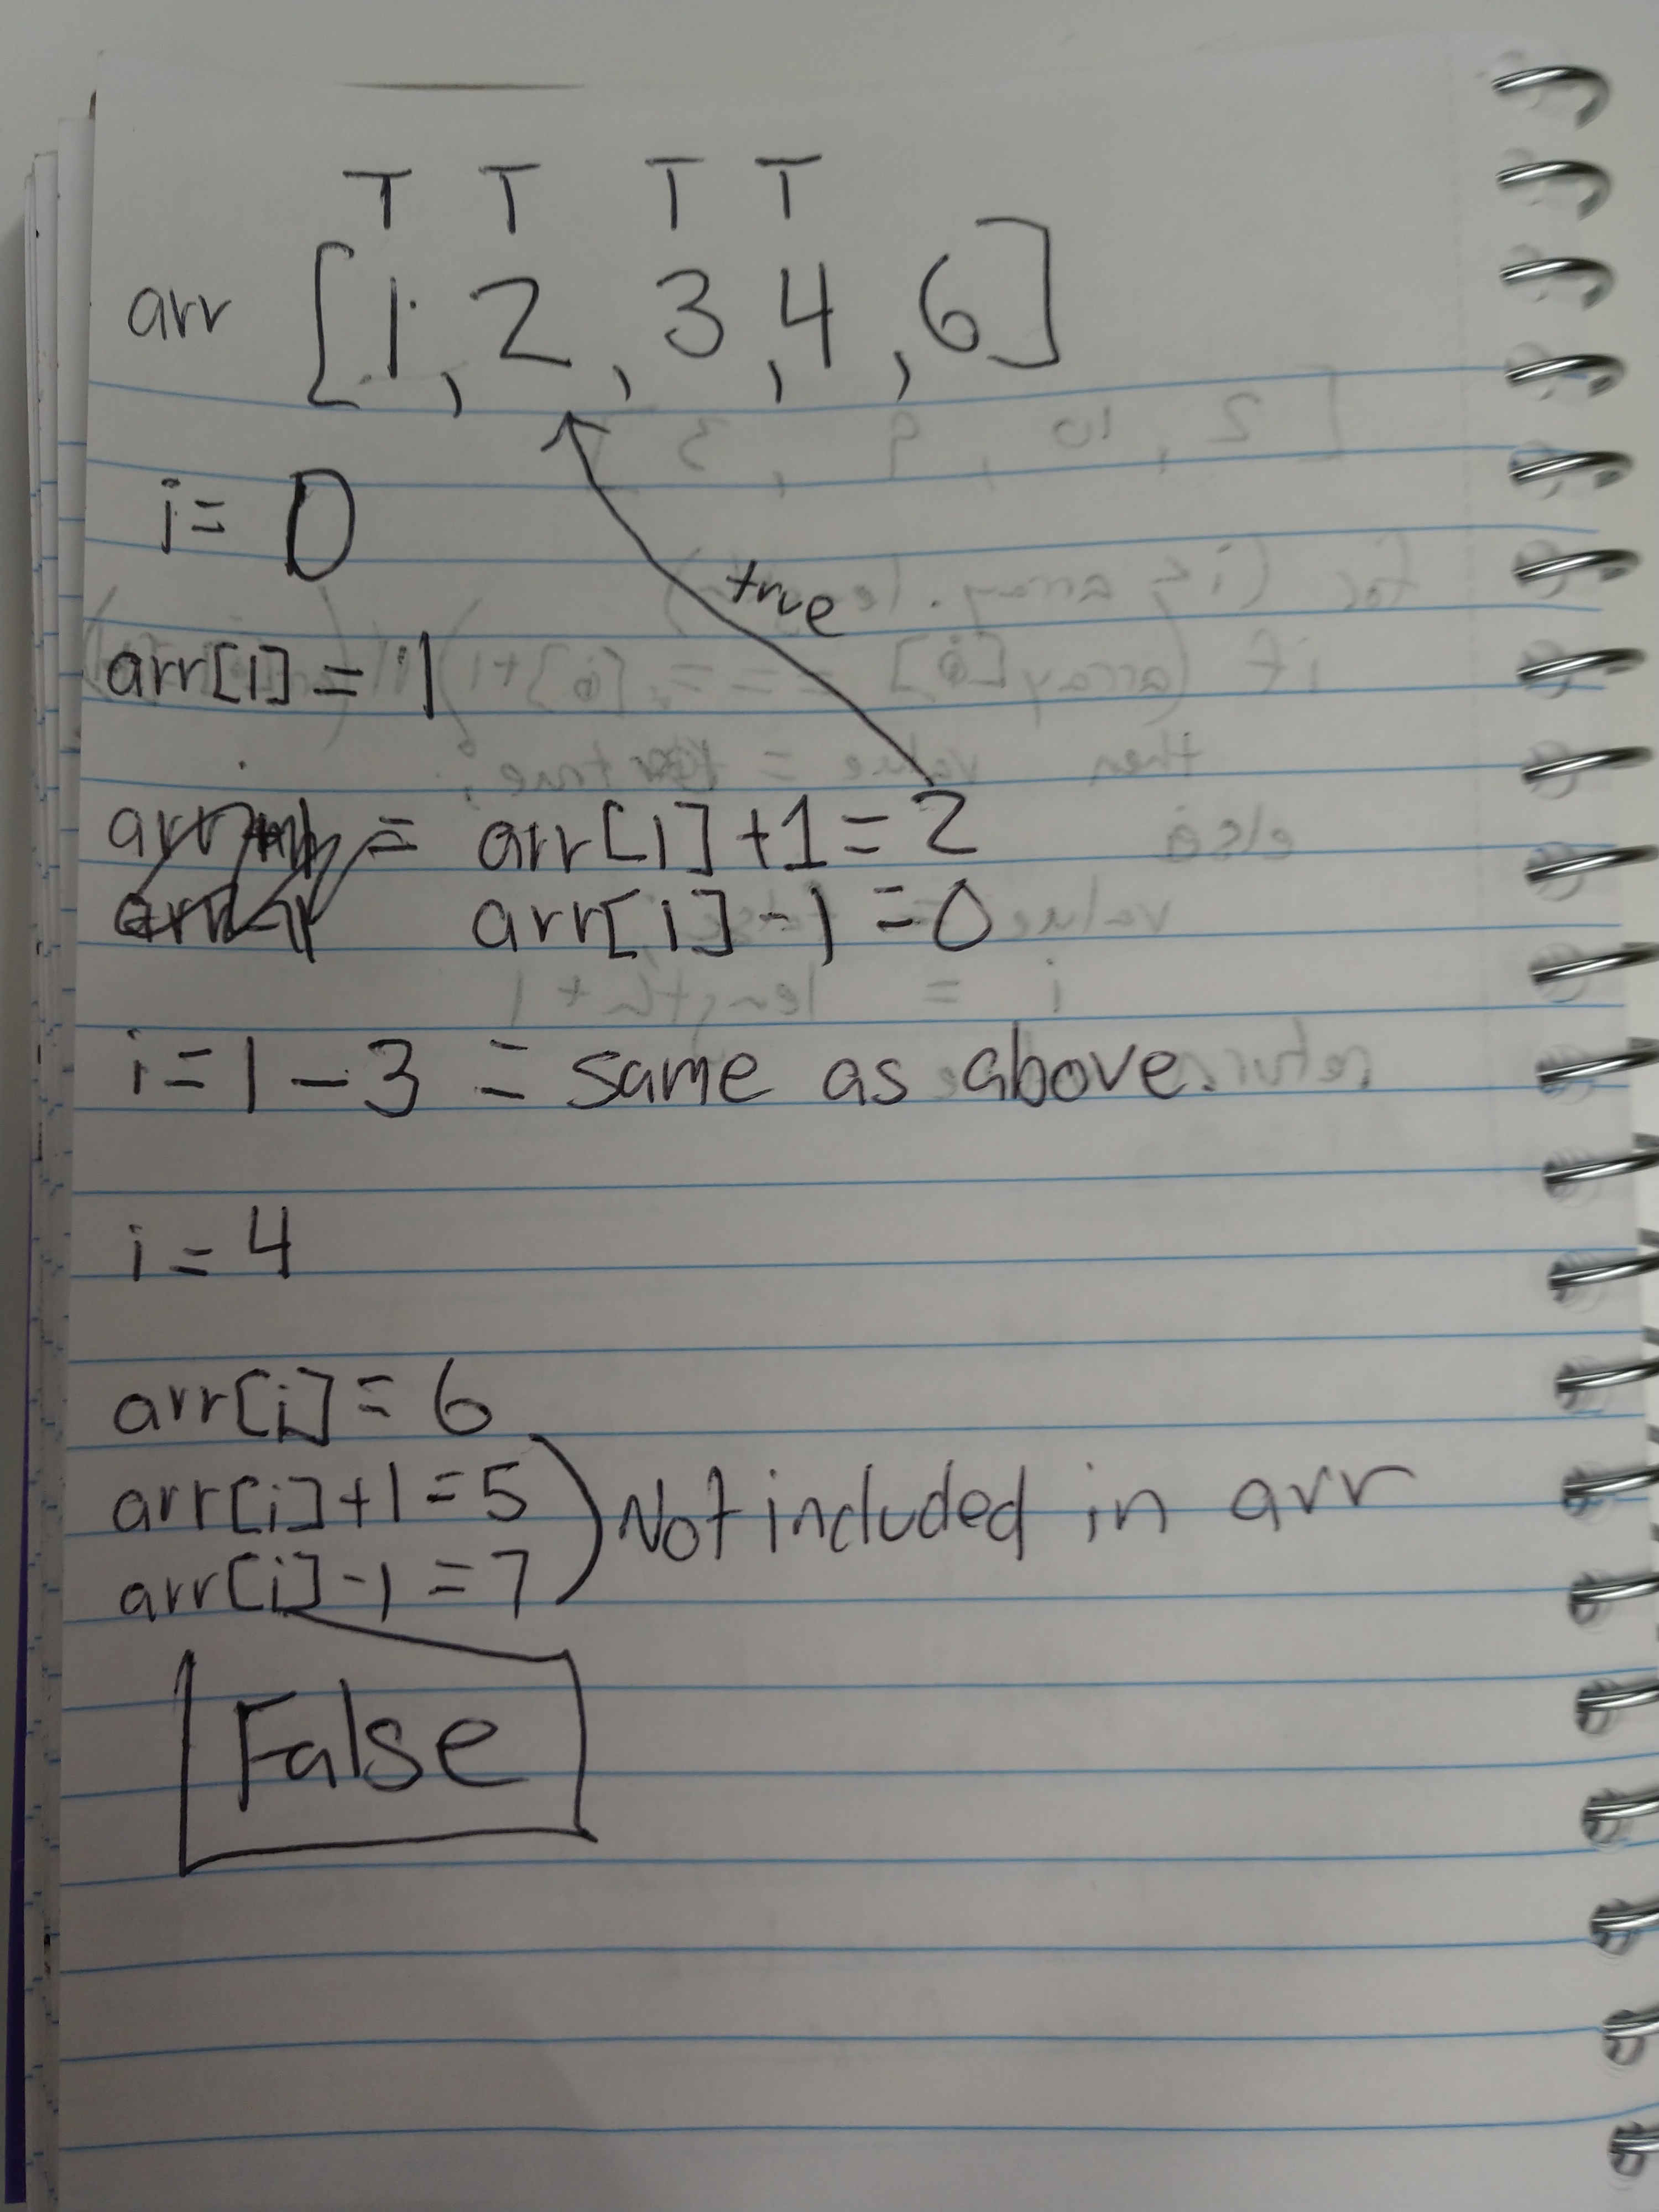 T T T T
arr [1, 2, 3, 4, 6]
i = 0
true
arr[i] = 1
= arr[i] + 1 = 2
arr[i] - 1 = 0
i = 1 - 3 = same as above.
i = 4
arr[i] = 6
arr[i] + 1 = 5
Not included in arr
arr[i] - 1 = 7
False